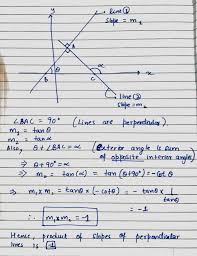 y
line ①
slope = m₁
B
A
θ
α
C
x
line ②
slope = m₂
∠BAC = 90° (Lines are perpendicular)
m₁ = tanθ
m₂ = tanα
Also, θ + ∠BAC = α (Exterior angle is sum
of opposite interior angles)
⇒ θ+90° = α
⇒ m₂ = tan(α) = tan(θ+90°) = -cot θ
⇒ m₁ x m₂ = tanθ x (-cotθ) = - tanθ x 1/tanθ
= -1
∴ m₁ x m₂ = -1
Hence, product of slopes of perpendicular
lines is -1